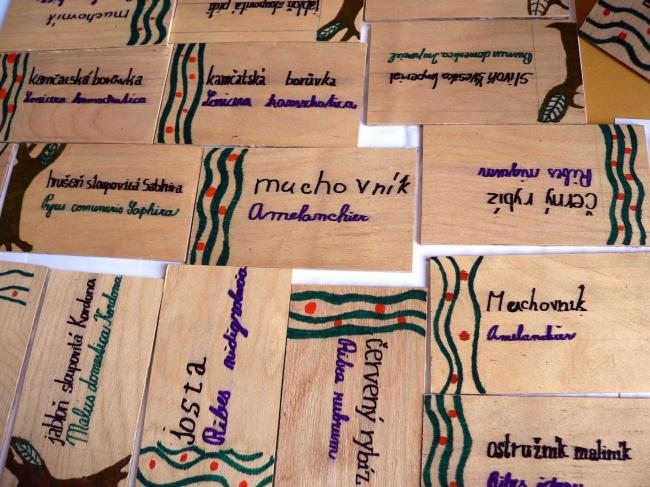 muchovník
jabloň sloupovitá
kamčatská borůvka
Lonicera kamschatica
kamčatská borůvka
Lonicera kamschatica
Slivoň Švestka Imperial
Prunus domestica Imperial
hrušeň sloupovitá Saphira
Pyrus comuneris Saphira
muchovník
Amelanchier
Černý rybíz
Ribes nigrum
jabloň sloupovitá Kordona
Malus domestica Kordona
josta
Ribes nidigrolaria
červený rybíz
Ribes rubrum
Muchovník
Amelanchier
ostružník maliník